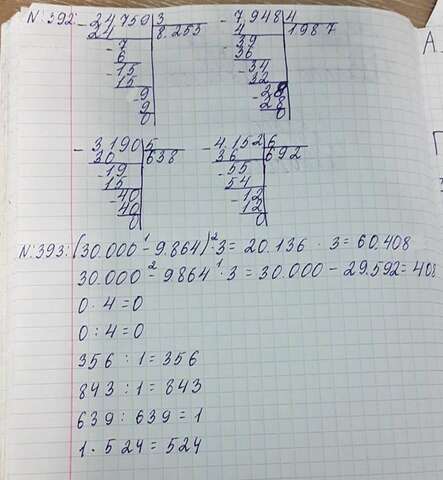 N: 392: - 24,750 | 3 - 7,948 | 4
24 8.255 4 1987
- 7 - 39
6 36
- 15 - 34
15 32
- 9 - 28
9 28
0 0
- 3,190 | 5 - 4,152 | 6
30 638 36 692
- 19 - 55
15 54
- 40 - 12
40 12
0 0
N: 393: (30.000 ¹- 9.864) ²· 3 = 20.136 · 3 = 60.408
30.000 ²- 9.864 ¹· 3 = 30.000 - 29.592 = 408
0 · 4 = 0
0 : 4 = 0
356 : 1 = 356
843 : 1 = 843
639 : 639 = 1
1 · 524 = 524
А.